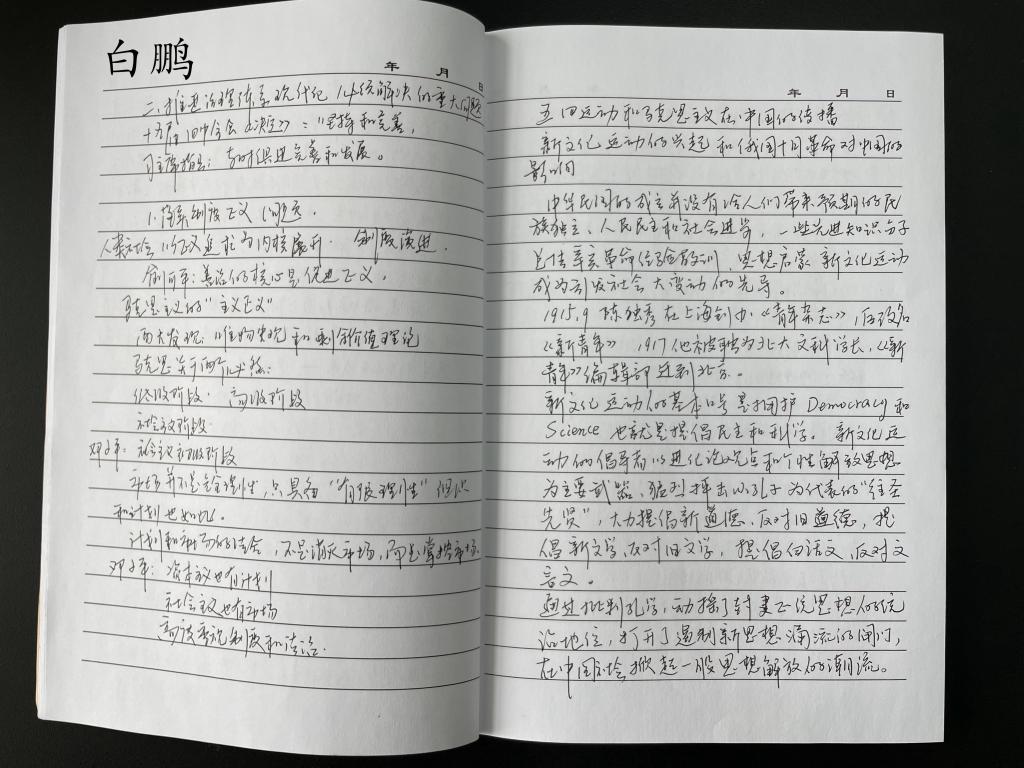 白鹏
年 月 日
二、推进治理体系现代化 14 统解决的重大问题
十九届四中全会《决定》:"坚持和完善,
习主席指出:与时俱进完善和发展。
1. 体系制度正义问题。
人类社会以正义追求为内核展开 制度演进.
俞可平:善治的核心是促进正义。
马克思主义的"主义正义"
两大发现:唯物史观和剩余价值理论
马克思关于两个阶段:
低级阶段 高级阶段
社会主义阶段
邓小平:社会主义初级阶段
市场并不是完全理性,只具有"有限理性"但
和计划也如此。
计划和市场的结合,不是消灭市场,而是掌控市场.
邓小平:资本主义也有计划
社会主义也有市场
高度重视制度和法治.
年 月 日
五四运动和马克思主义在中国的传播
新文化运动的兴起和俄国十月革命对中国的
影响
中华民国的成立并没有给人们带来预期的民
族独立、人民民主和社会进步,一些先进知识分子
总结辛亥革命经验教训,思想启蒙新文化运动
成为引发社会大变动的先导。
1915.9 陈独秀在上海创办《青年杂志》,后改名
《新青年》 1917 他被聘为北大文科学长,《新
青年》编辑部迁到北京。
新文化运动的基本口号是拥护 Democracy 和
Science 也就是提倡民主和科学。新文化运
动的倡导者以进化论观点和个性解放思想
为主要武器,猛烈抨击以孔子为代表的"往圣
先贤",大力提倡新道德、反对旧道德,提
倡新文学、反对旧文学,提倡白话文,反对文
言文。
通过批判孔学,动摇了封建正统思想的统
治地位,打开了遏制新思想涌流的闸门,
在中国社会掀起一股思想解放的潮流。